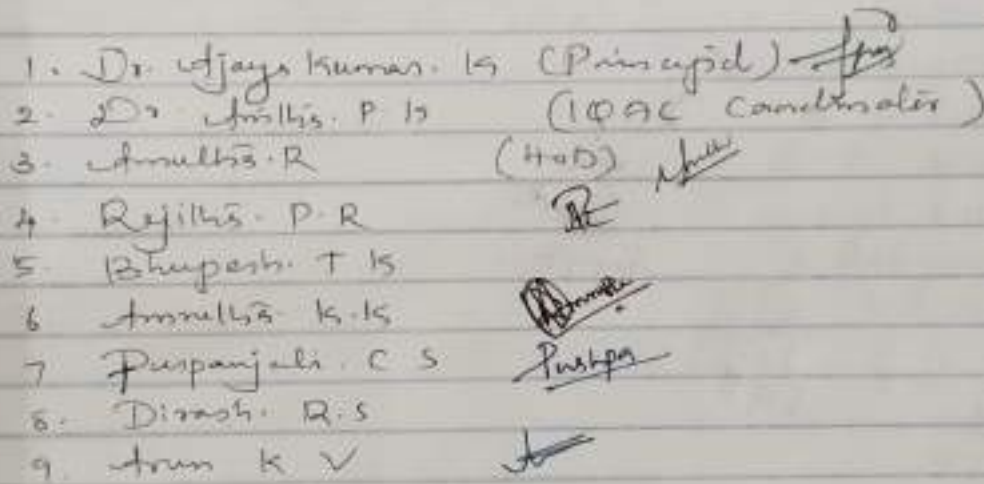 1. Dr. Ajaya Kumar. K (Principal)
2. Dr P K (IQAC Coordinator)
3. R (HOD)
4. Rejitha. P. R
5. Bhupesh. T K
6 K.K
7 Puspanjali. C S Pushpa
8. Dinash. R.S
9. Arun K V